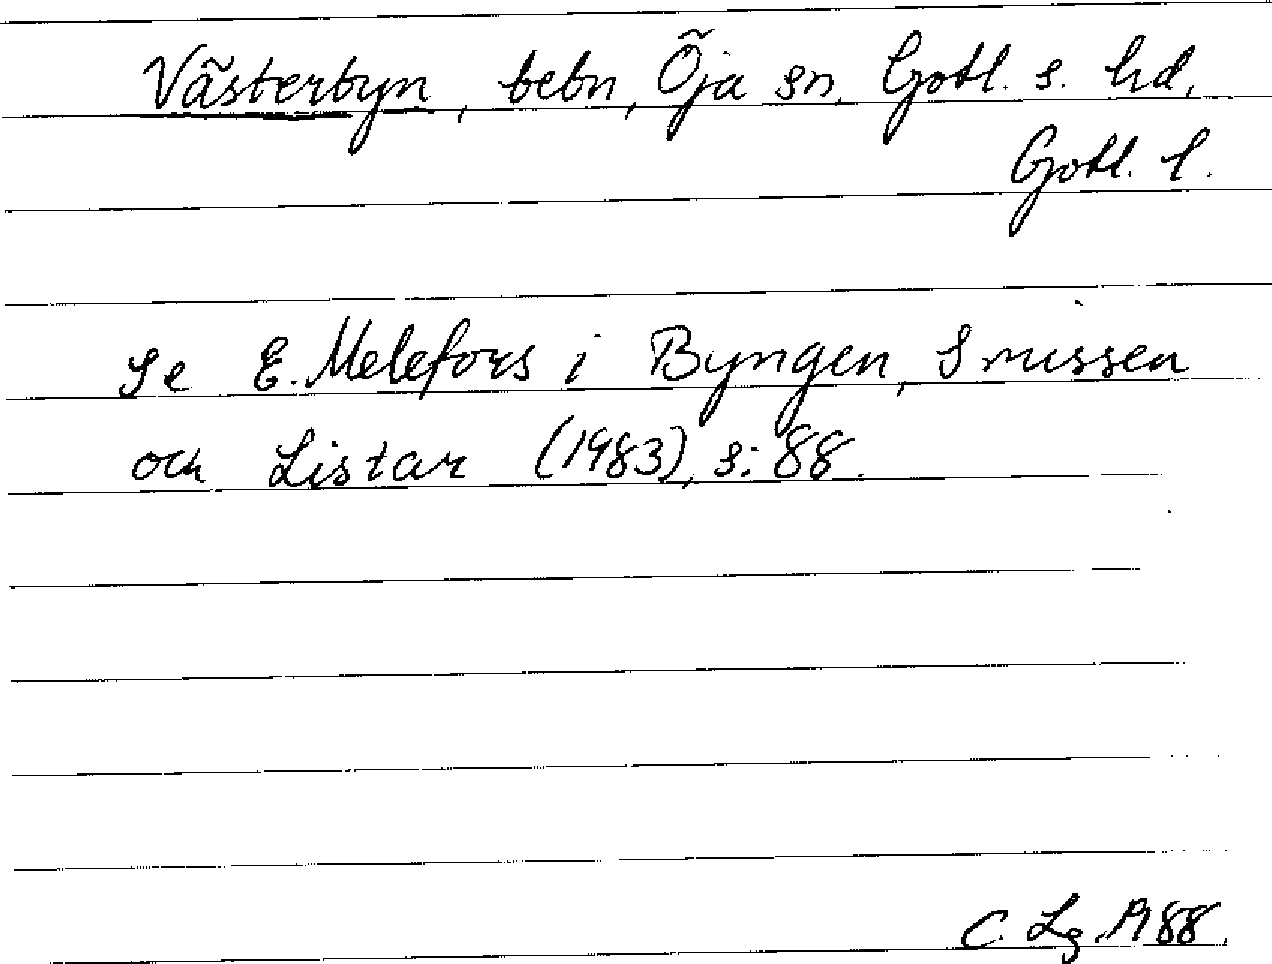 Västerbyn, bebn, Öja sn, Gotl. s. hd,
Gotl. l.
Se E. Melefors i Byngen, Smissen
och Listar (1983), s. 88.
C. Lg 1988.